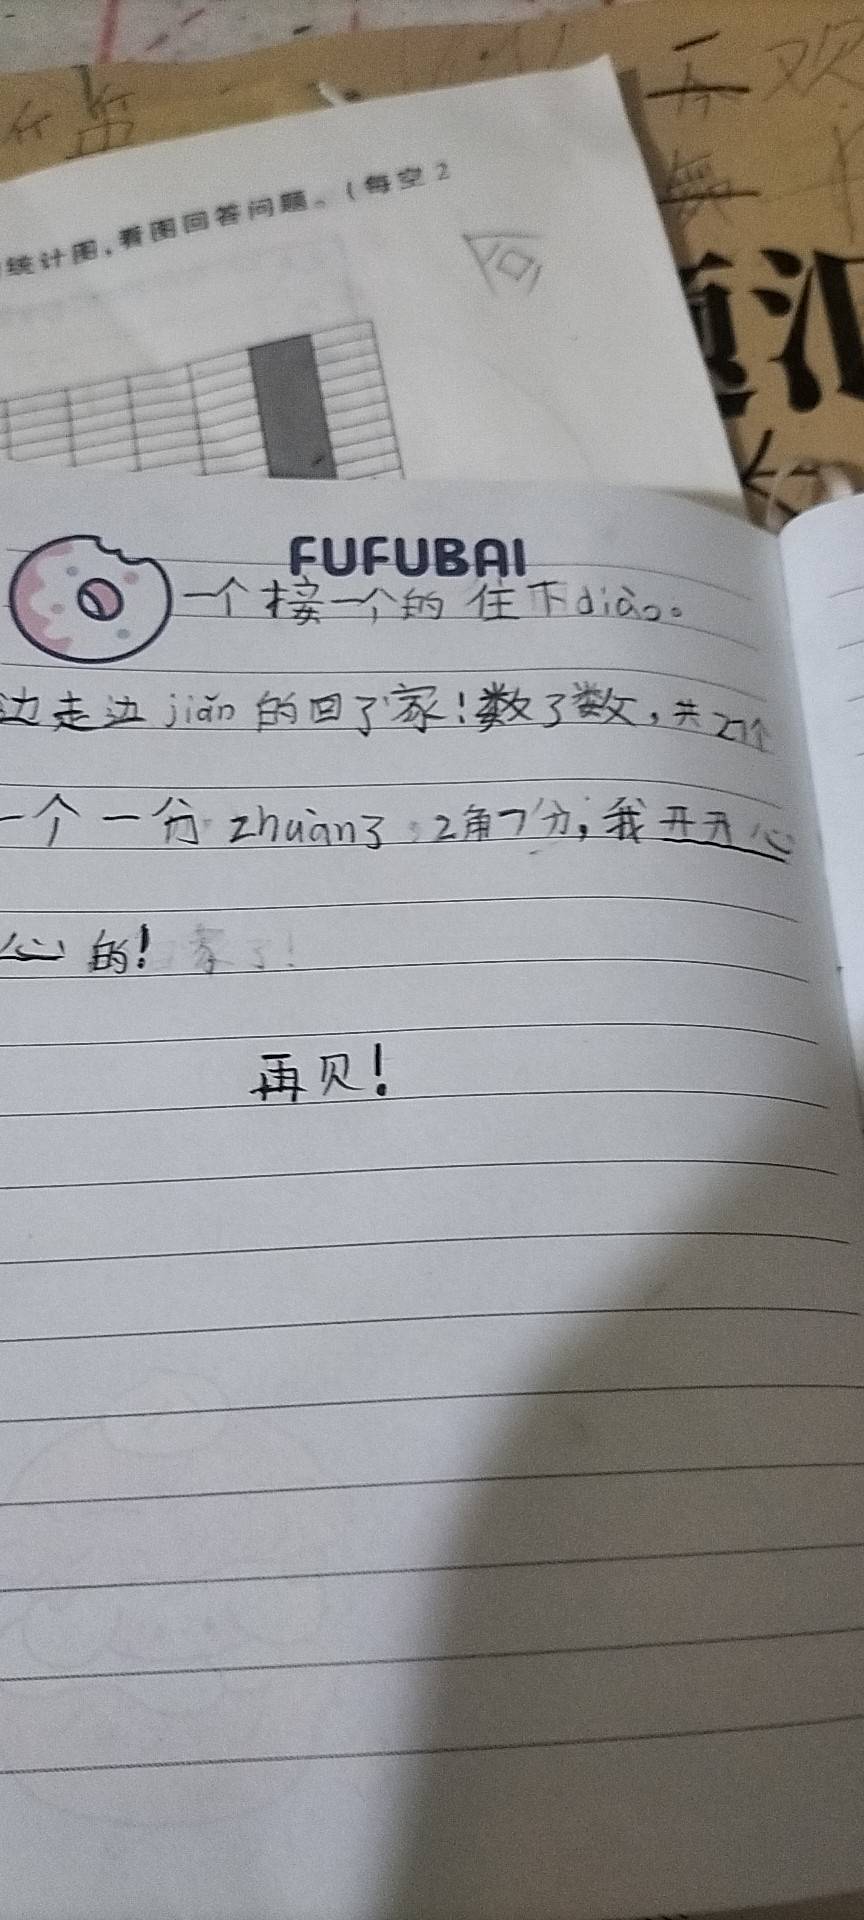 统计图,看图回答问题。(每空2
FUFUBAI
一个接一个的住下diào。
边走边jiǎn的回了家!数了数,共27个
一个一分zhuàn了2角7分,我开开心
心的!家了!
再见!